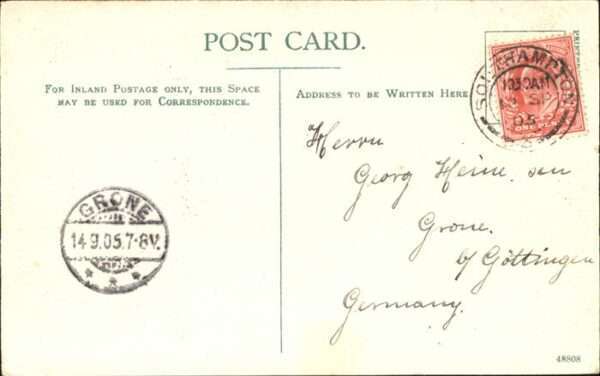 POST CARD.
FOR INLAND POSTAGE ONLY, THIS SPACE
MAY BE USED FOR CORRESPONDENCE.
ADDRESS TO BE WRITTEN HERE
SOUTHAMPTON
10 30 AM
05
Herrn
Georg Heine, sen
Grone.
b/ Göttingen
Germany.
GRONE
14.9.05.7-8V.
48808